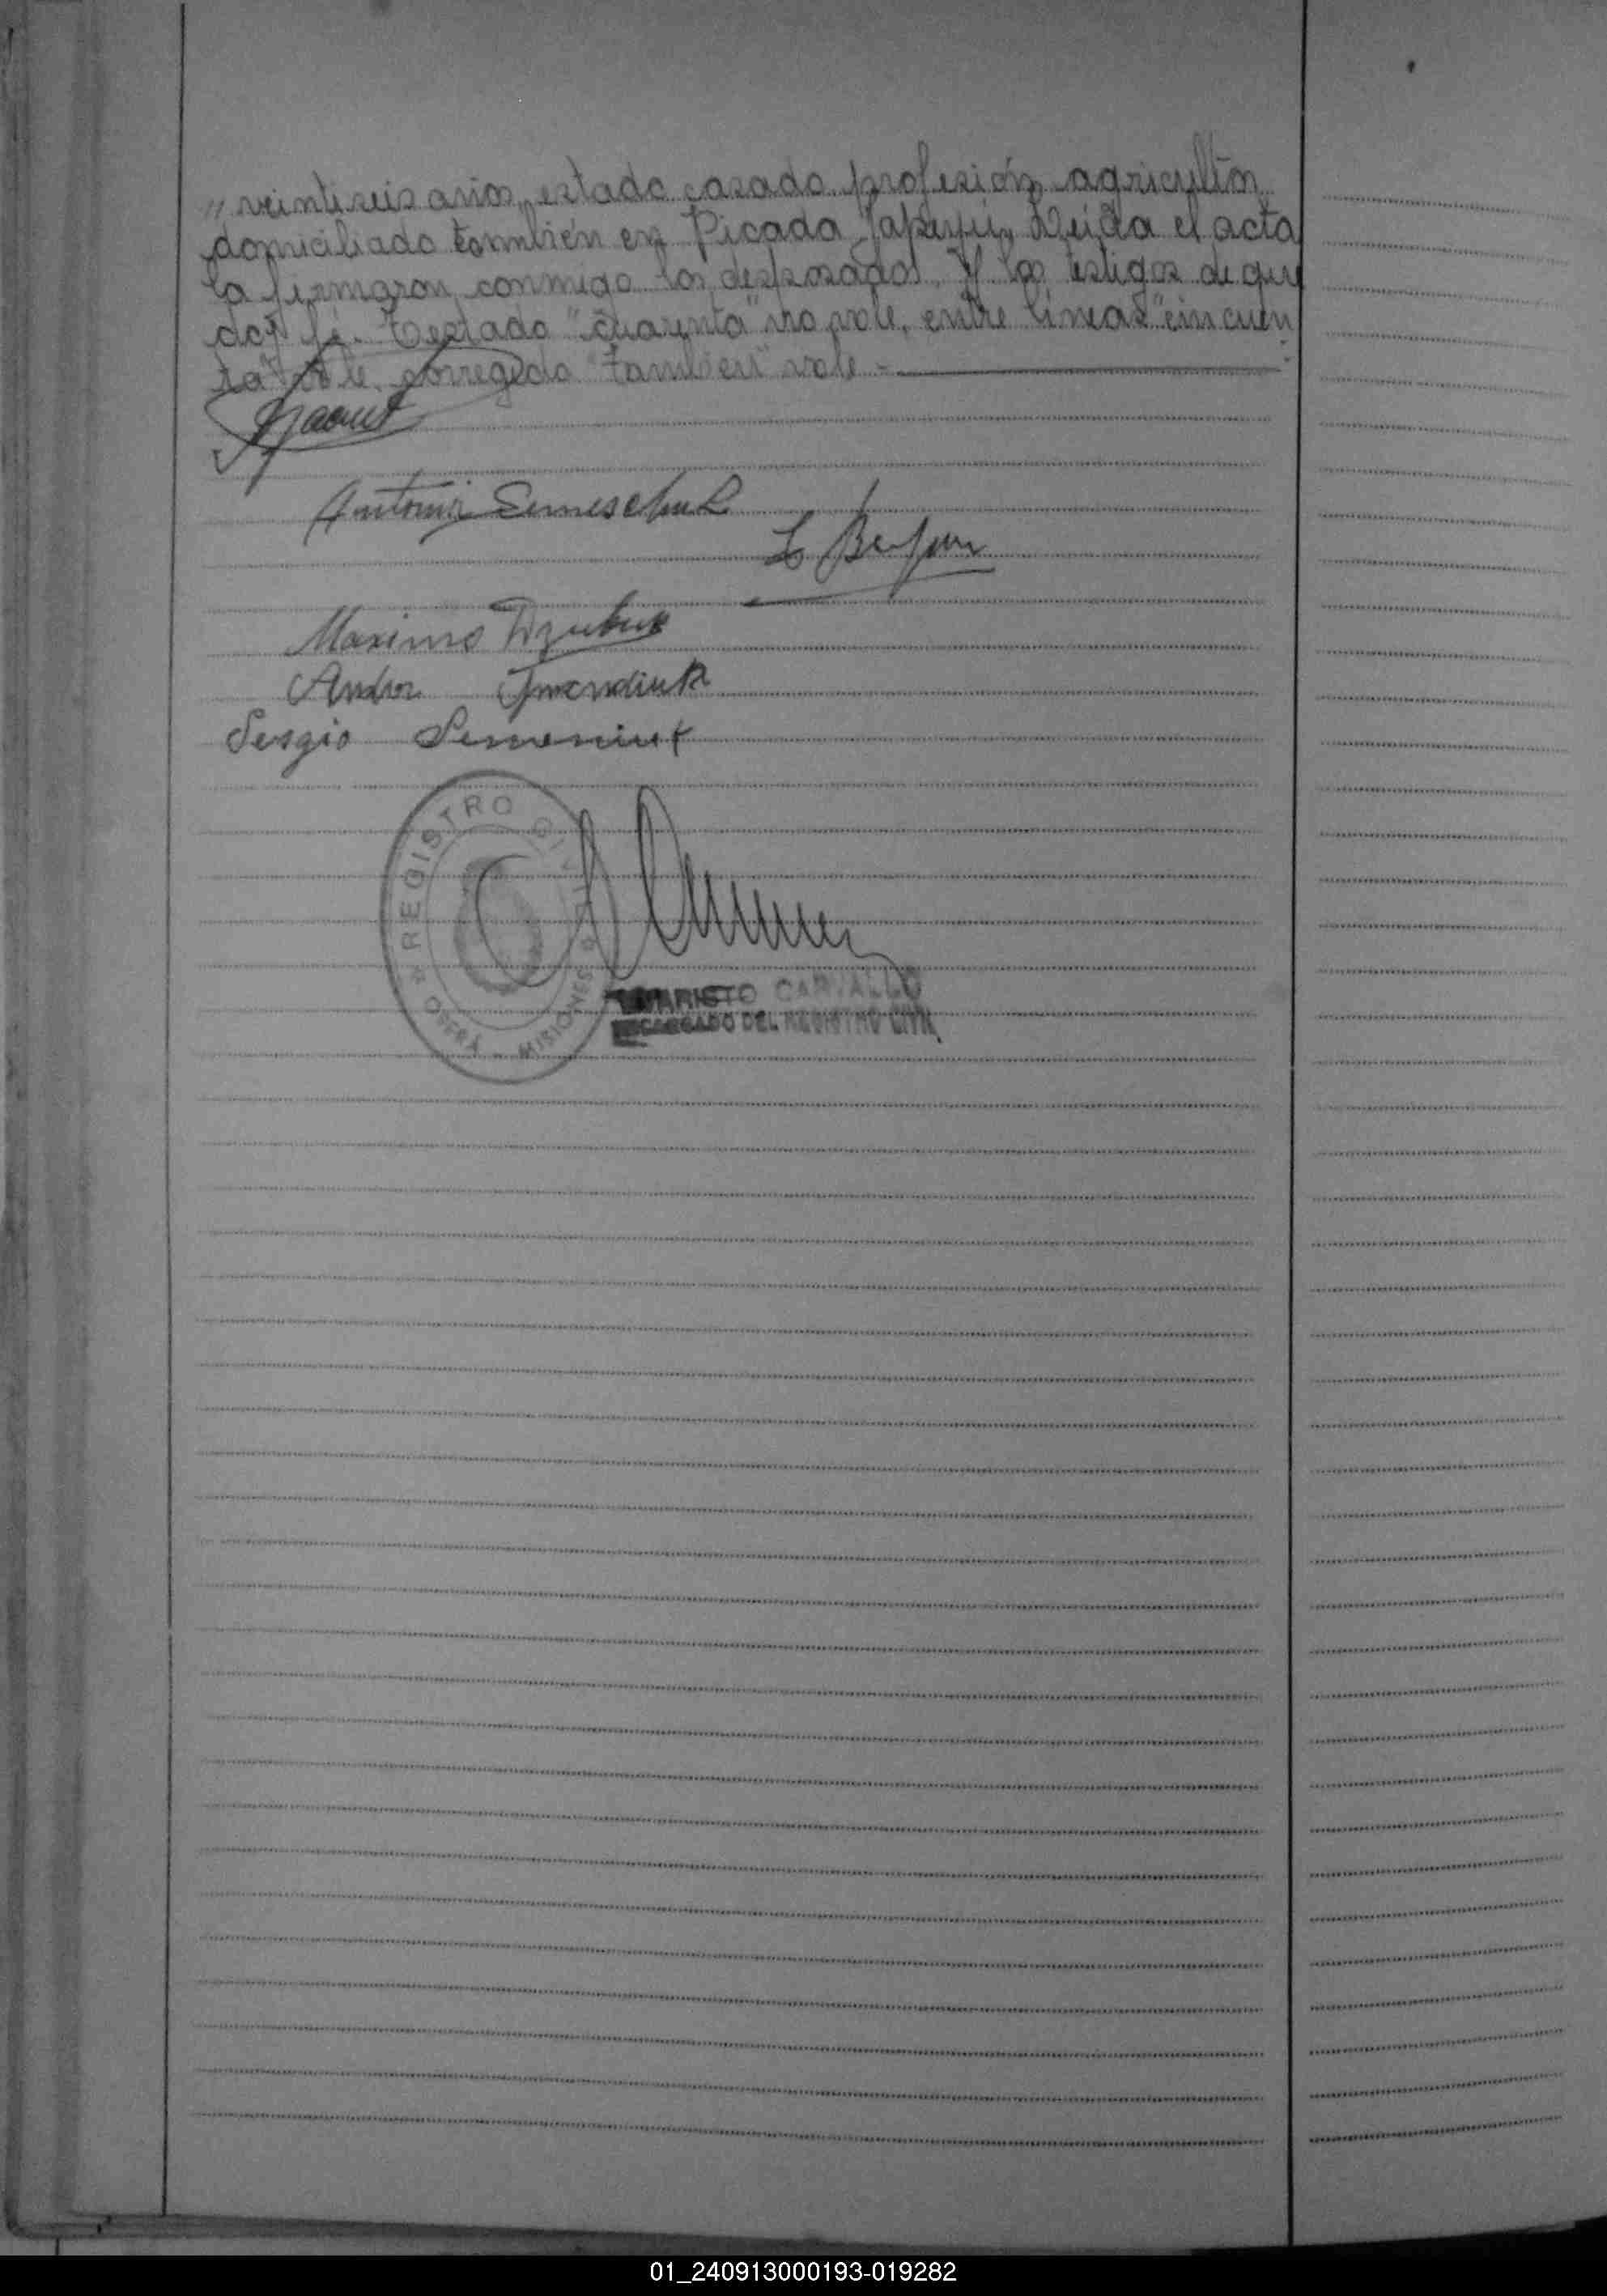 " veintiseis años, estado casado profesión agricultor
domiciliado también en Picada Yapeyú, Leída el acta
la firmaron conmigo los desposados. Y los testigos de que
doy fé. Testado "cuarenta" no vale, entre líneas "cincuen
ta" vale, corregido "también" vale -
Semeschuk
Maximo
Sergio Semeniuk
REGISTRO CIVIL
OBERÁ - MISIONES
EVARISTO CARVALLO
ENCARGADO DEL REGISTRO CIVIL
01_240913000193-019282